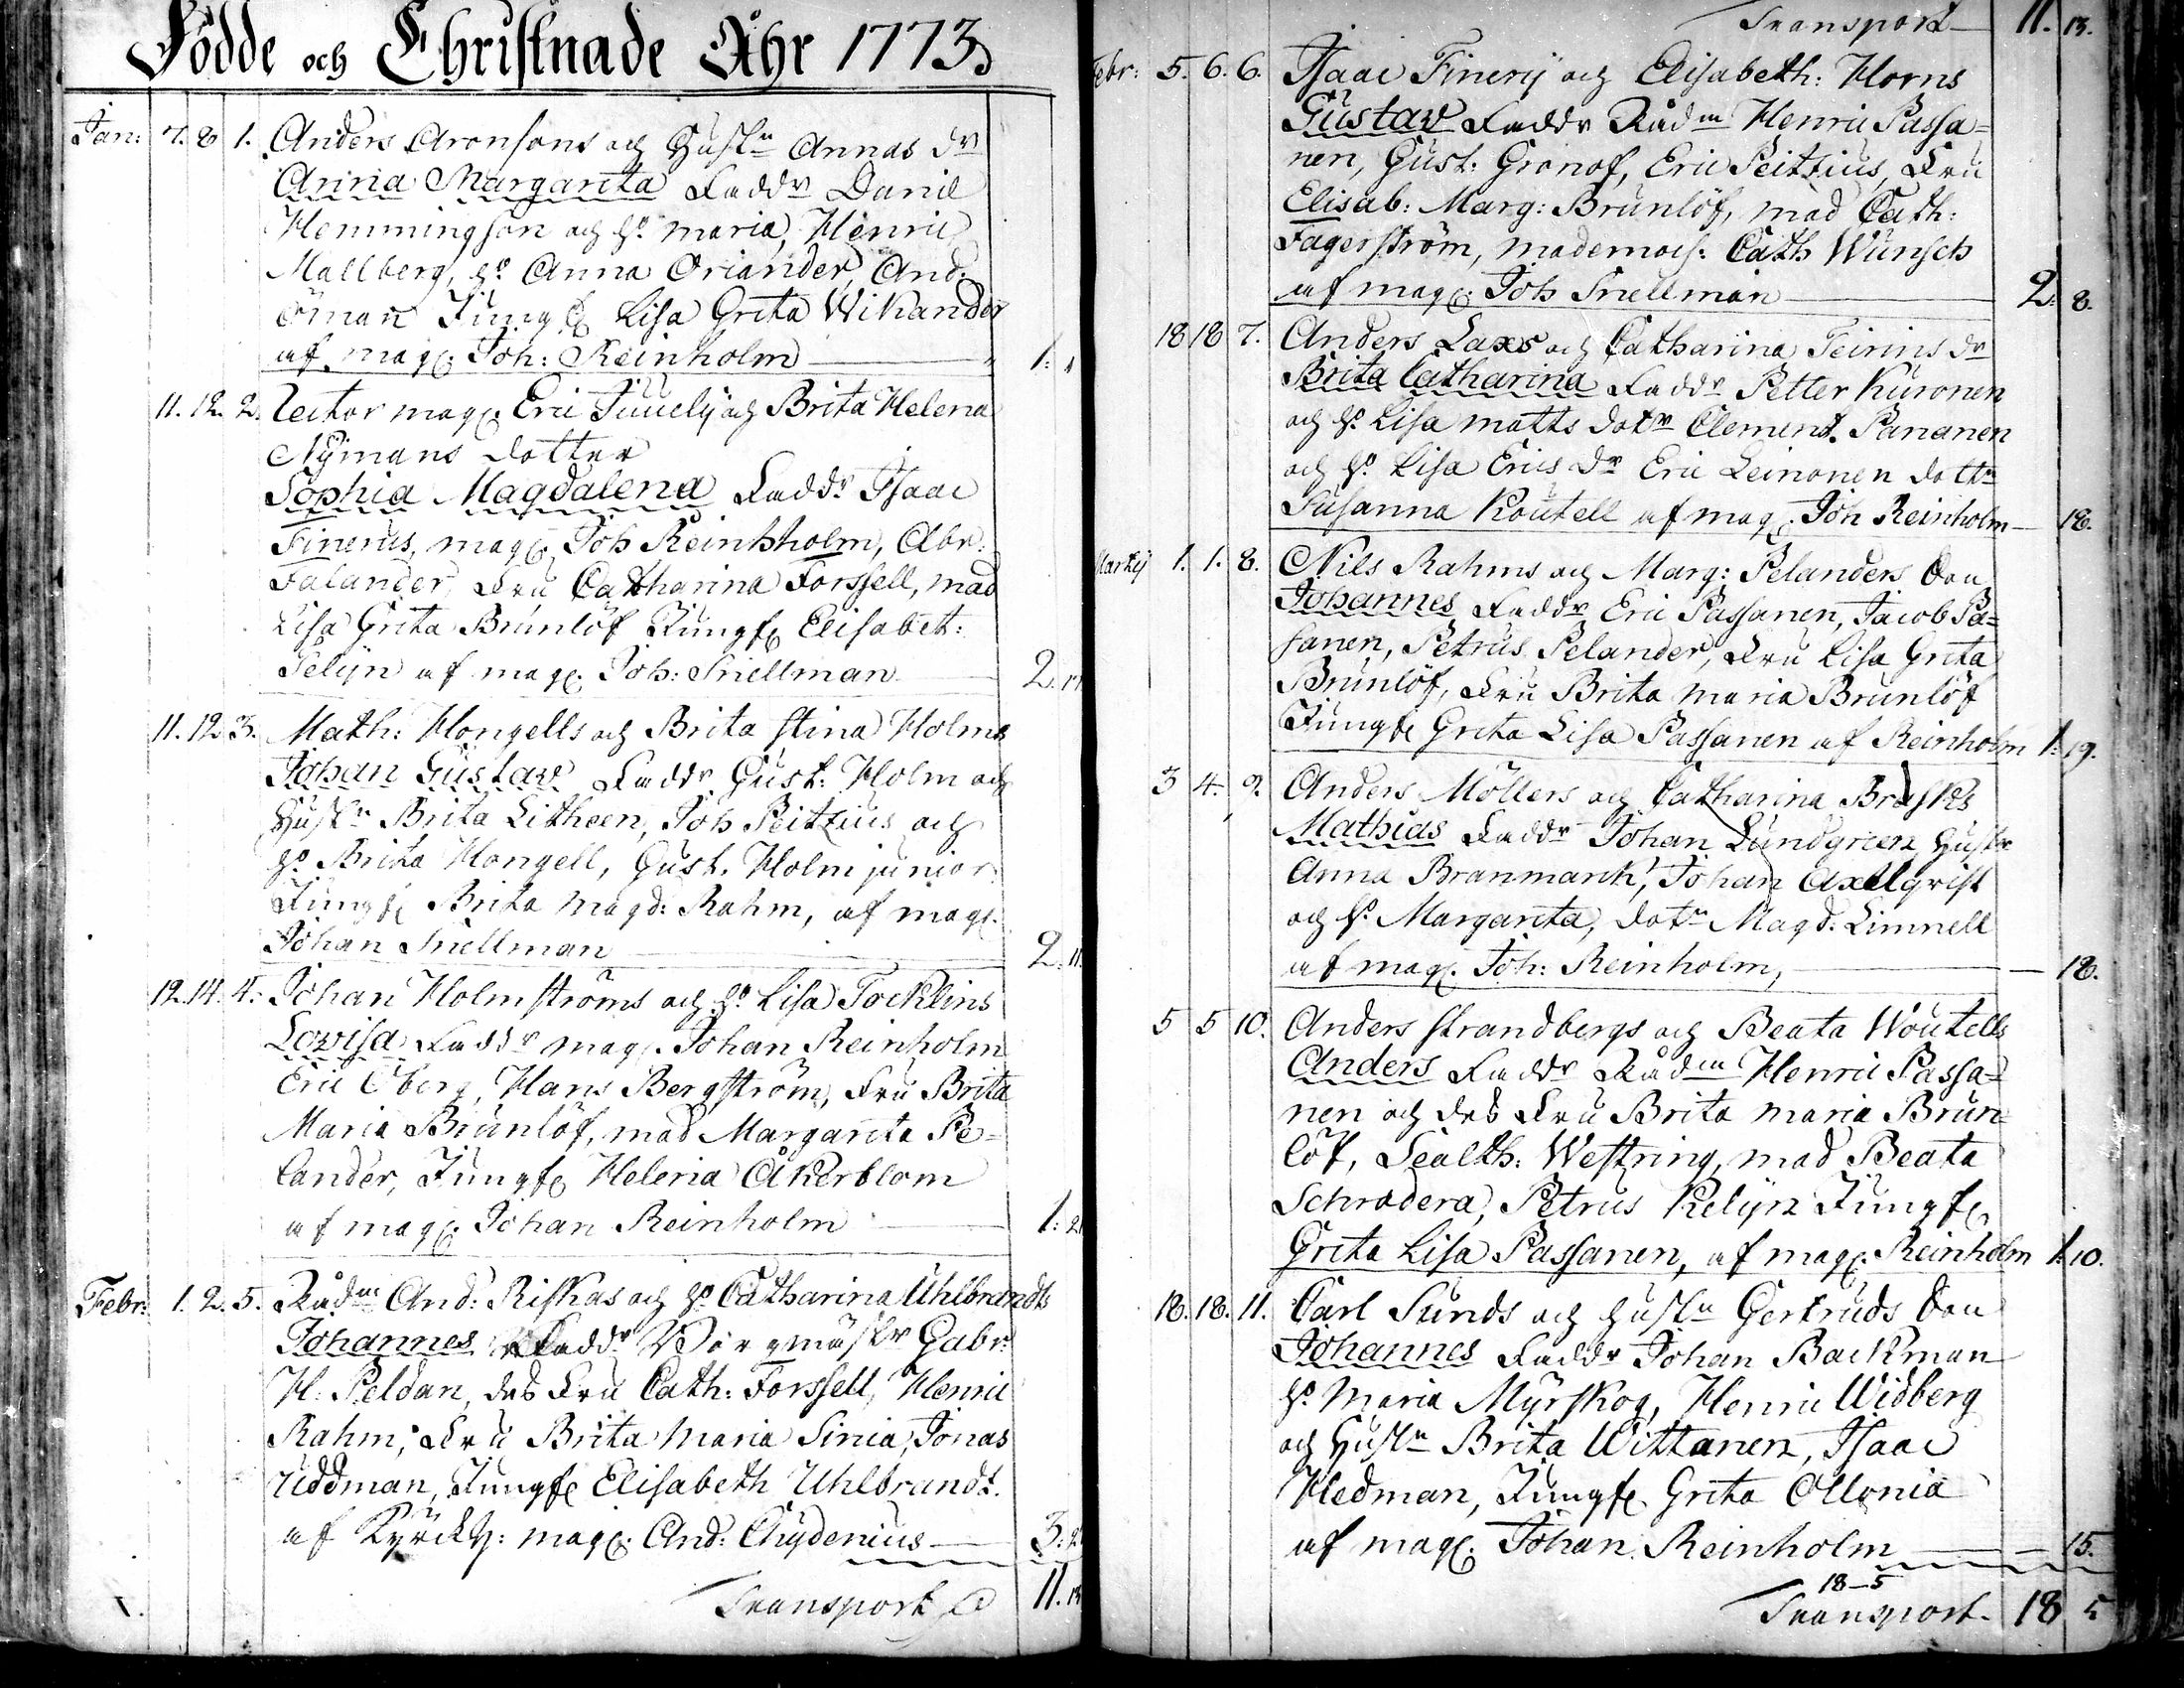 Födde och Christnade Åhr 1773
Jan: 7. 8 1. Anders Aronsons och Hustn Annas dr
Anna Margareta Faddr Daniel
Hemmingson och h. maria, Henric
Mallberg, h. Anna Oriander, And.
öman Jungf Lisa Greta Wikander
af mag. Joh: Reinholm 1:
11. 12. 2. Rector mag. Eric Juuely och Brita Helena
Nÿmans dotter
Sophia Magdalena Faddr Isaac
Finerus, mag. Joh Reinhholm, Abr.
Falander, Fru Catharina Forssell, mad
Lisa Greta Brunlöf Jungf Elisabet:
Pelÿn af mag. Joh: Snellman 2.
11. 12 3. Math: Hongells och Brita Stina Holms
Johan Gustav Faddr Gust: Holm och
Hustr Brita Litheen, Joh Peitzius och
h. Brita Hongell, Gust. Holm junior
Jungf Brita Magd: Rahm, af mag.
Johan Snellman 2. 11.
12. 14. 4. Johan Holmströms och h. Lisa Tocklins
Lovisa Faddr mag. Johan Reinholm
Eric Öberg, Hans Bergström, Fru Brita
Maria Brunlöf, mad Margareta Pe=
lander, Jungf Helena Åkerblom
af mag. Johan Reinholm 1: 2
Febr: 1. 2. 5. Rådm And: Riskas och h. Catharina Uhlbrandts
Johannes Faddr Borgmästr Gabr:
H: Peldan, des Fru Cath: Forssell, Henric
Rahm, Fru Brita Maria Sinia, Jonas
Uddman, Jungf Elisabeth Uhlbrandt.
af Kyrckh: mag. And: Chydenius 3: 2
Transport 11. 13
Transport 11. 13.
Febr: 5. 6. 6. Isaac Finerÿ och Elisabeth: Horns
Gustav Faddr Rådm Henric Passa=
nen, Gust: Gronof, Eric Peitzius, Fru
Elisab: Marg: Brunlöf, mad Cath:
Fagerström, mademois: Cath Wunsch
af mag. Joh Snellman 2. 8.
18 18 7. Anders Laxs och Catharina Teirins dr
Brita Catharina Faddr Petter Kuronen
och h. Lisa Matts dotr Clement. Pananen
och h. Lisa Erics dr Eric Leinonen dottr
Susanna Koutell af mag. Joh Reinholm 18.
Martÿ 1. 1. 8. Nils Rahms och Marg: Pelanders Son
Johannes Faddr Eric Passanen, Jacob Pa=
sanen, Petrus Pelander, Fru Lisa Greta
Brunlöf, Fru Brita maria Brunlöf
Jungf Greta Lisa Passanen af Reinholm 1: 19.
3 4. 9. Anders Möllers och Catharina Brasks
Mathias Faddr Johan Lundgreen Hustr
Anna Branmark, Johan Axelqvist
och h. Margareta, dotr Magd: Limnell
af mag. Joh: Reinholm, 18.
5 5 10. Anders Strandbergs och Beata Woutells
Anders Faddr Rådm Henric Passa=
nen och des Fru Brita maria Brun=
löf, Sealth: Westring, mad Beata
Schrodera, Petrus Kelÿn Jungf
Greta Lisa Passanen, af mag. Reinholm 1: 10.
18. 18. 11. Carl Sunds och Hustn Gertruds Son
Johannes Faddr Johan Backman
h. Maria Mÿrskog, Henric Widberg
och Hustn Brita Wittanen, Isaac
Hedman, Jungf. Greta Ollonia
af mag. Johan Reinholm 15.
18-5
Transport. 18 5